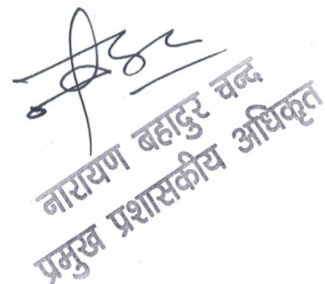 नारायण बहादुर चन्द
प्रमुख प्रशासकीय अधिकृत